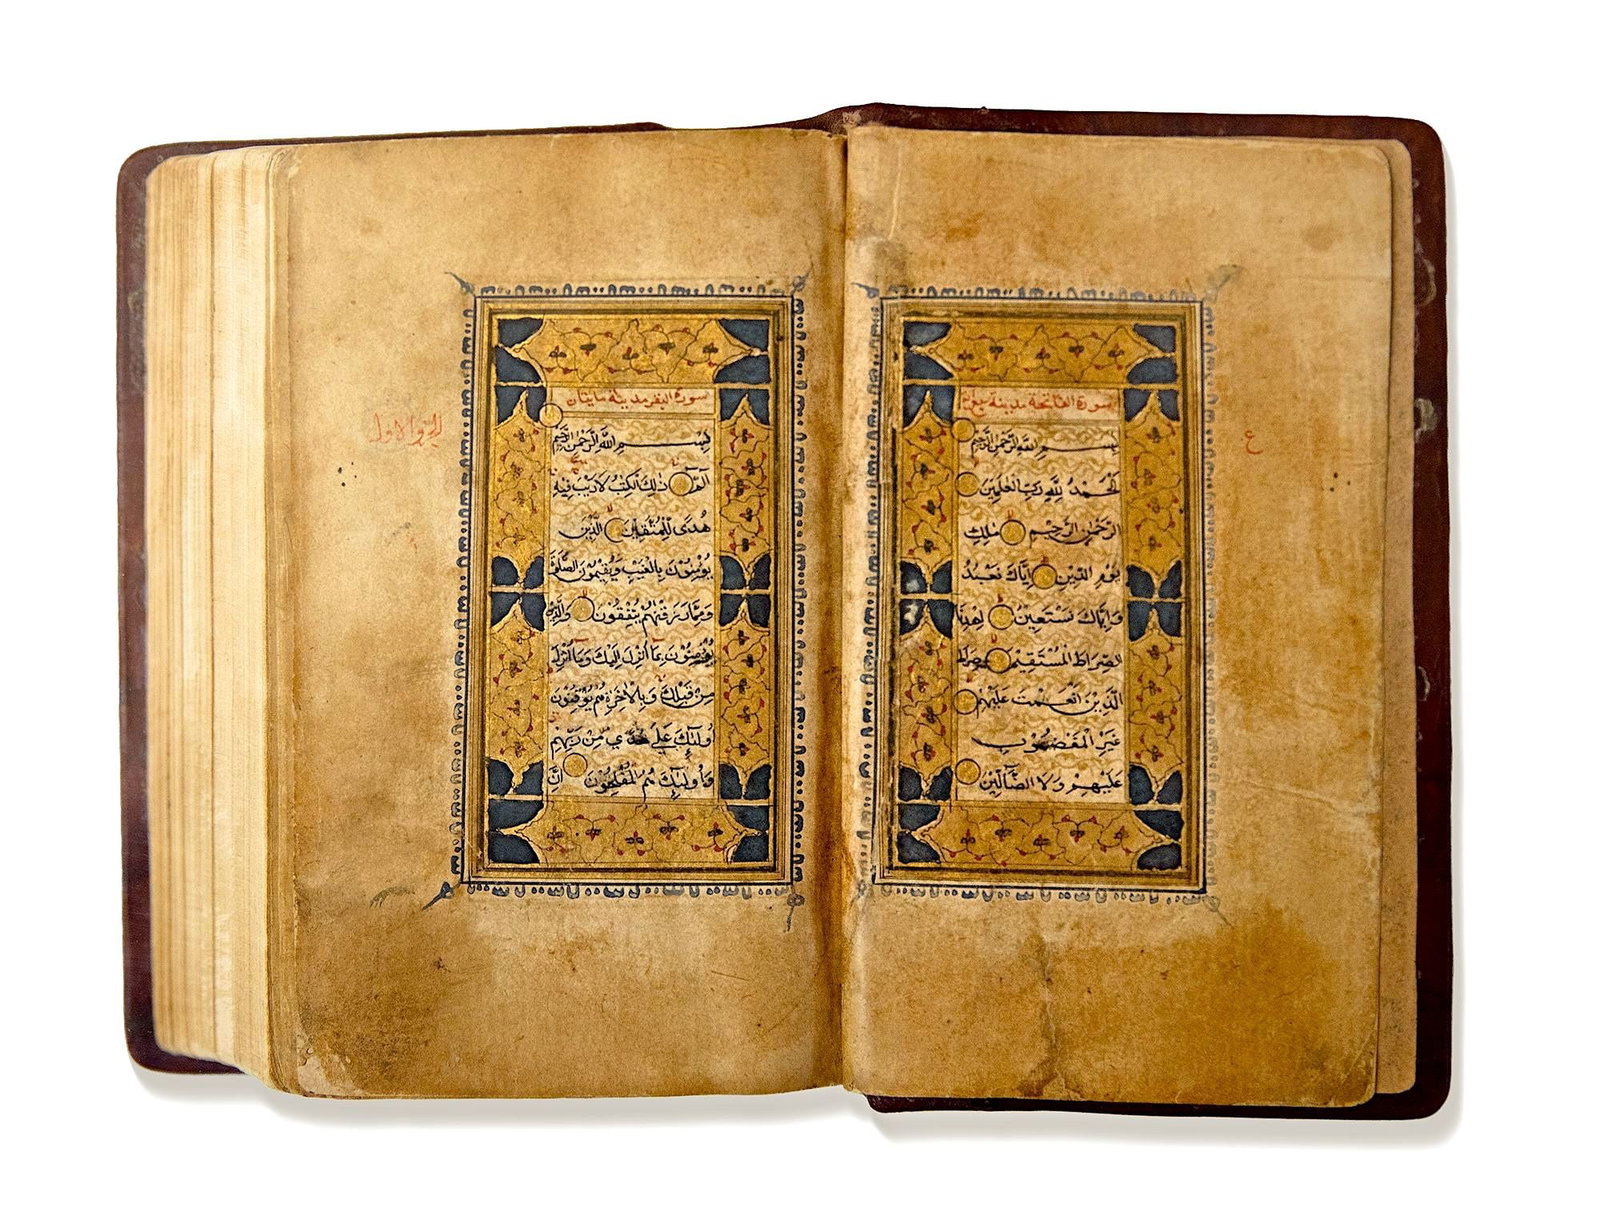 سورة الفاتحة مدينة سبع
بسم الله الرحمن الرحيم
الحمد لله رب العلمين
الرحمن الرحيم ملك
يوم الدين اياك نعبد
واياك نستعين اهدنا
الصراط المستقيم صراط
الذين انعمت عليهم
غير المغضوب
عليهم ولا الضالين
ع
سورة البقر مدينة مايتان
بسم الله الرحمن الرحيم
الم ذلك الكتب لا ريب فيه
هدى للمتقين الذين
يومنون بالغيب ويقيمون الصلوة
ومما رزقنهم ينفقون والذين
يومنون بما انزل اليك وما انزل
من قبلك وبالاخرة هم يوقنون
اولئك على هدي من ربهم
واولئك هم المفلحون ان
الجزوا الاول